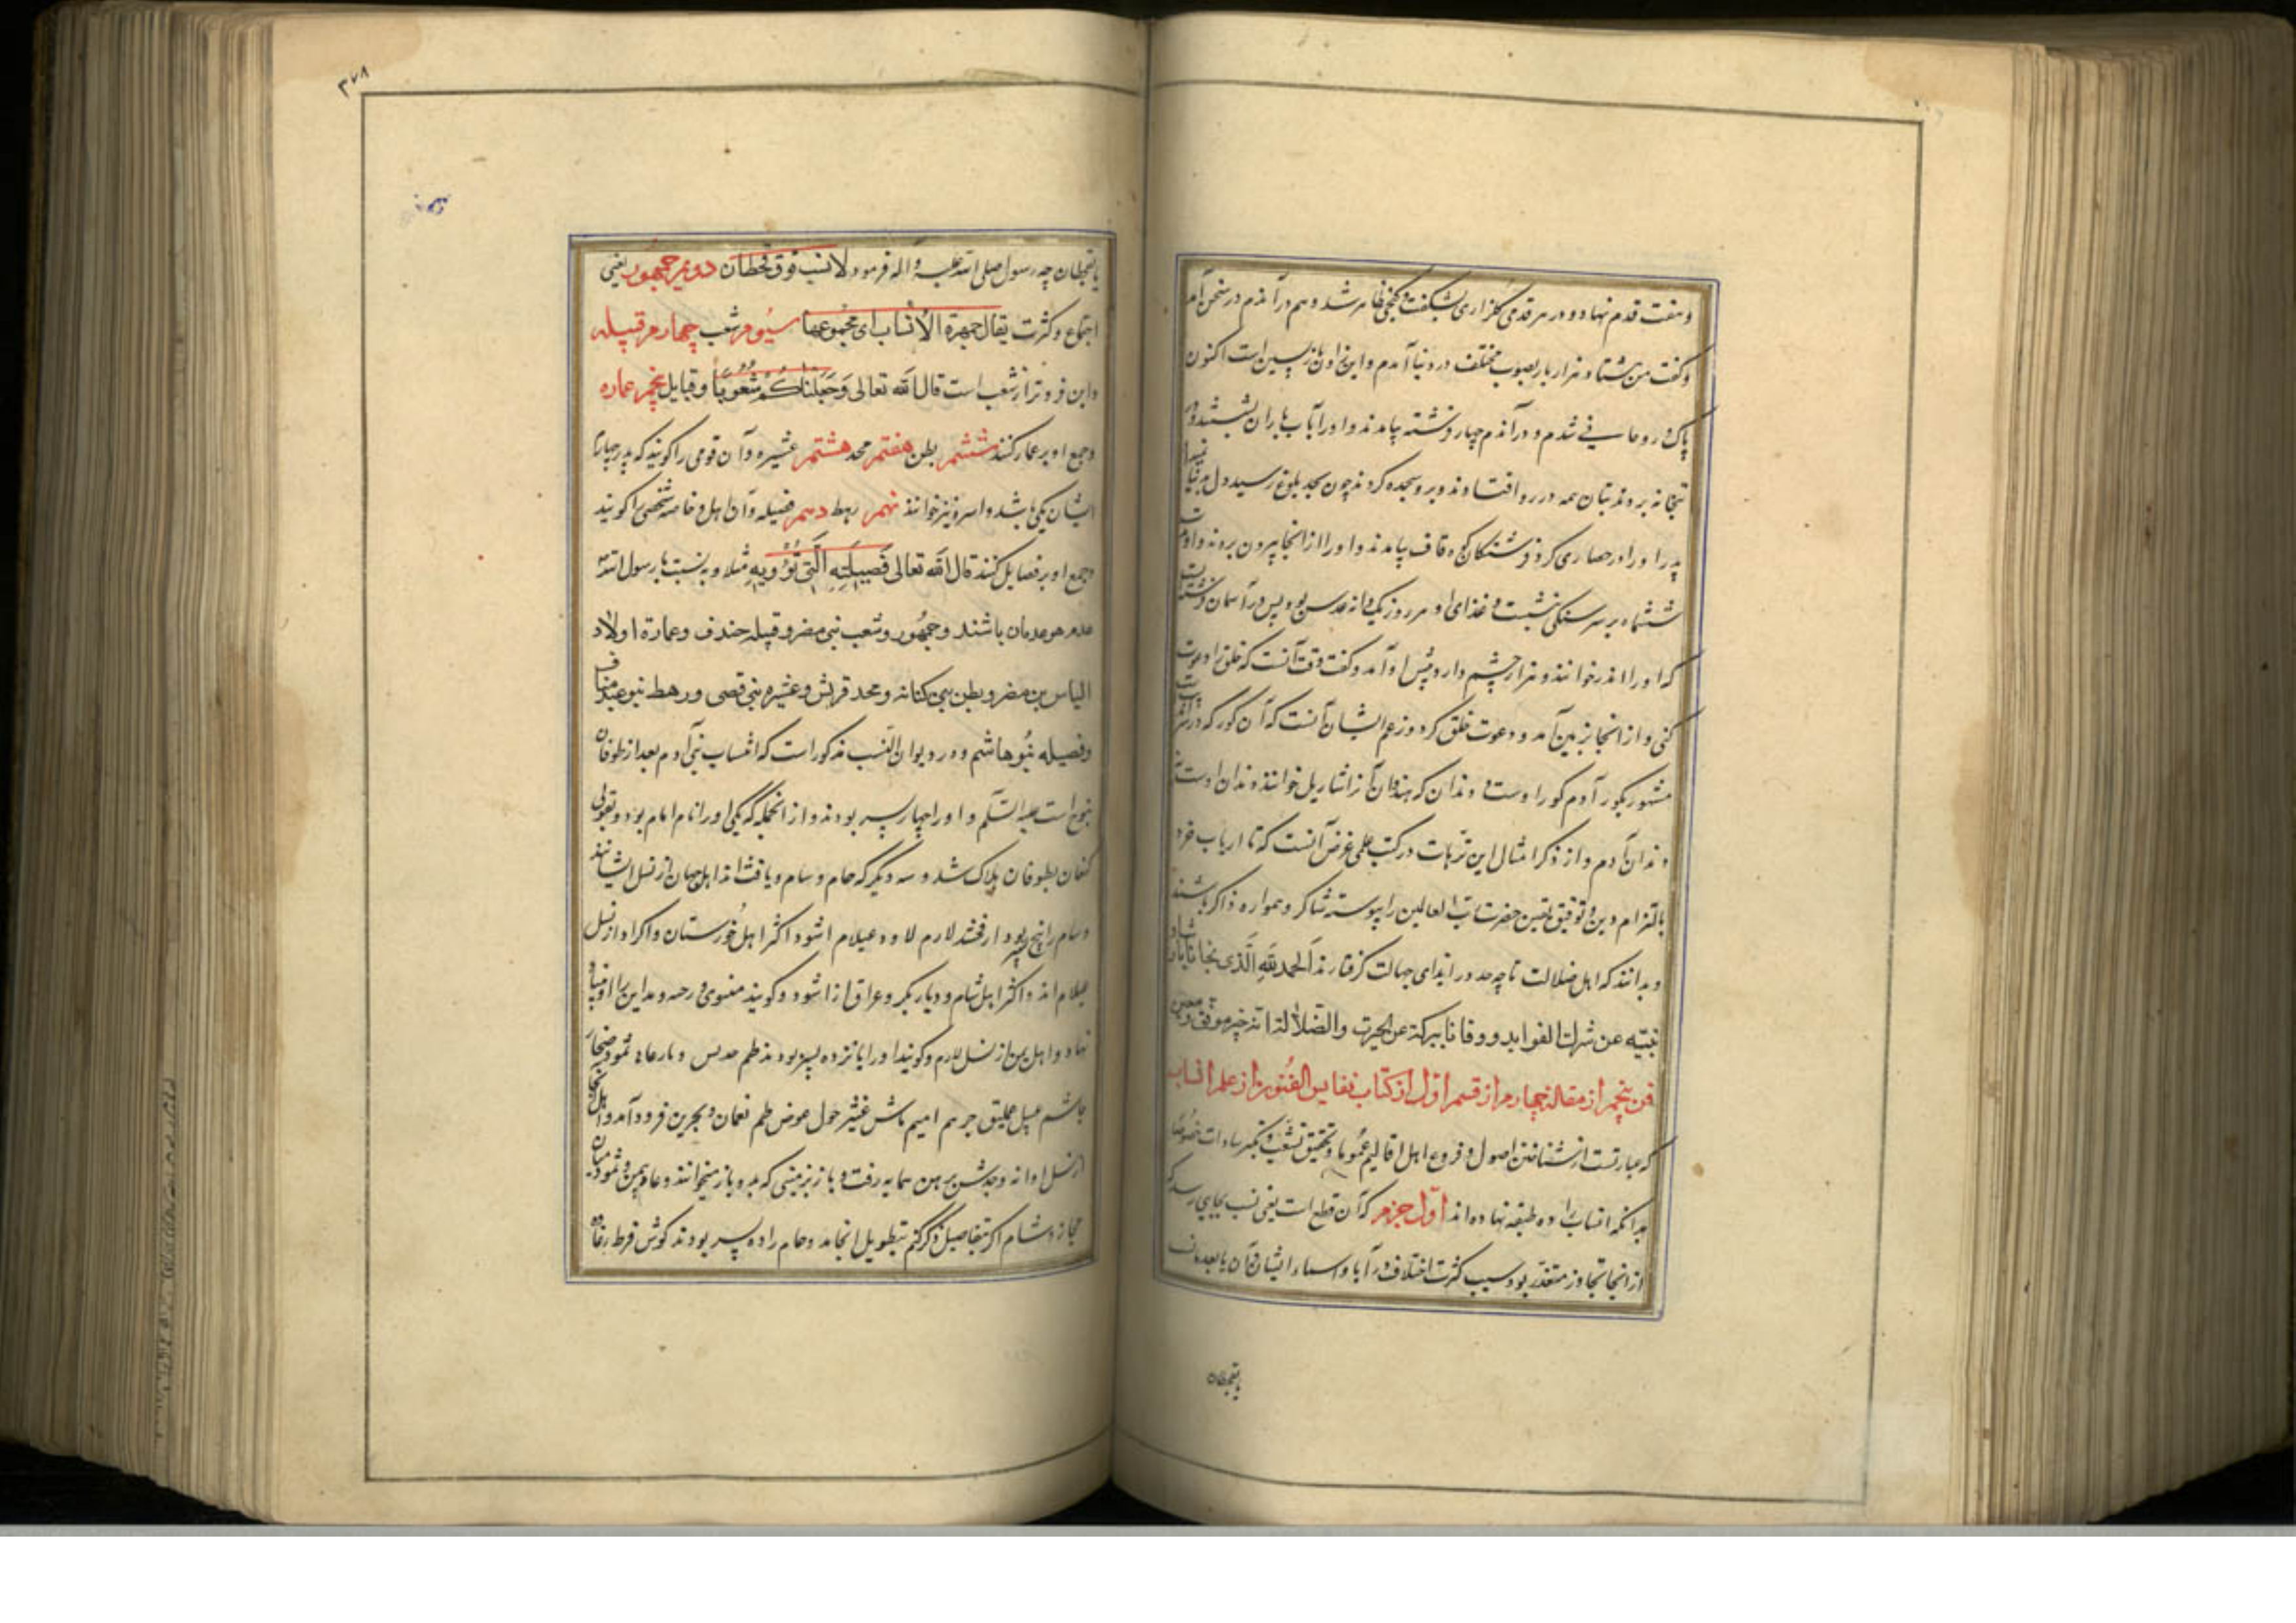 و هفت قدم نهاد و در هر قدمی گلزاری بشکفت و گنجی ظاهر شد و هم در آندم در سخن آمد
و گفت من هشتاد هزار بار بصوب مختلف در دنیا آمدم و این زادن بازپسین است اکنون
پاک و روحانی شدم و در آندم چهار فرشته بیامدند و او را بآب باران بشستند و در
بتخانه بردند بتان همه در رو افتادند و برو سجده کردند چون بحد بلوغ رسید دل بر دنیا
پدر او را در حصاری کرد فرشتگان کوه قاف بیامدند و او را از آنجا بیرون بردند و او
ششماه بر سر سنگی نشست و غذای او هر روز یکدانه عدس بود پس در آسمان فرشته
که او را اندر خوانند و هزار چشم دارد پیش او آمد و گفت وقت آنست که خلق را دعوت
کنی و از آنجا بزمین آمد و دعوت خلق کرد و زعم ایشان آنست که آن گور که در
مشهور بگور آدم گور اوست و دندان که هندوان آنرا شاریل خوانند دندان اوست نه
دندان آدم و از ذکر امثال این ترهات در کتب علمی غرض آنست که تا ارباب خرد
بالتزام دین و توفیق یقین حضرت رب العالمین را پیوسته شاکر و همواره ذاکر باشند
و بدانند که اهل ضلالت تا چه حد در ابتدای جهالت گرفتارند الحمد لله الذی نجانا
نبیه عن شرک الغواید و وقانا ببرکته عن الحیرت والضلالة انه خیر موفق و معین
فن پنجم از مقاله چهارم از قسم اول از کتاب نفایس الفنون از علم انساب
که عبارتست از شناختن اصول و فروع اهل اقالیم عموما و تحقیق شعب و سادات خصوصا
بدانکه انساب را ده طبقه نهاده اند اول جزم که آن قطع است یعنی نسب بجایی رسد که
از انجا تجاوز متعذر بود بسبب کثرت اختلاف در آبا و اسماء ایشان و آن یا بعدنان
یا بقحطان
۳۷۸
یا بقحطان چه رسول صلی الله علیه و آله فرمود لا نسب فوق قحطان دویم جمهور یعنی
اجتماع و کثرت یقال جمهرة الانساب ای مجموعها سیوم شعب چهارم قبیله
و این فروتر از شعب است قال الله تعالی وَجَعَلْناکُمْ شُعُوباً و قبایل پنجم عماره
و جمع او بر عمار کنند ششم بطن هفتم محد هشتم عشیره و آن قومی را گویند که پدر چهارم
ایشان یکی باشد و اسره نیز خوانند نهم رهط دهم فصیله و آن اهل و خاصه شخص را گویند
و جمع او بر فصایل کنند قال الله تعالی فَصیلَتِه الَّتی تُؤْویهِ مثلا و به نسبت با رسول الله
باشند و جمهور و شعب بنی مضر و قبیله خندف و عمارة اولاد
الیاس بن مضر و بطن بنی کنانه و محد قریش و عشیره بنی قصی و رهط بنو عبد مناف
و فصیله بنو هاشم و در دیوان النسب مذکور است که انساب بنی آدم بعد از طوفان
بنوح است علیه السلم و او را چهار پسر بودند و از انجمله که یکی او را نام امام بود و بقولی
کنعان بطوفان هلاک شد و سه دیگر که حام و سام و یافث اند اهل جهان از نسل ایشانند
و سام را پنج پسر بود ارفخشد لارم لاود عیلام اشود اکثر اهل خوزستان و اکراد از نسل
عیلام اند و اکثر اهل شام و دیار بکر و عراق از اشود و گویند
نهاد و اهل یمن از نسل لارم و گویند او را پانزده پسر بودند طم جدیس و بار عاد ثمود
جاشم عبیل عملیق جرهم امیم ماش غیشر حول عوض طم نعمان و بحرین فرود آمد و اهل
از نسل او اند و جدیس بیمامه رفت و بار بزمینی که بدو باز میخوانند و عاد بیمن و ثمود میان
حجاز و شام اگر بتفاصیل ذکر کنم بتطویل انجامد و حام را ده پسر بودند کوش قرط